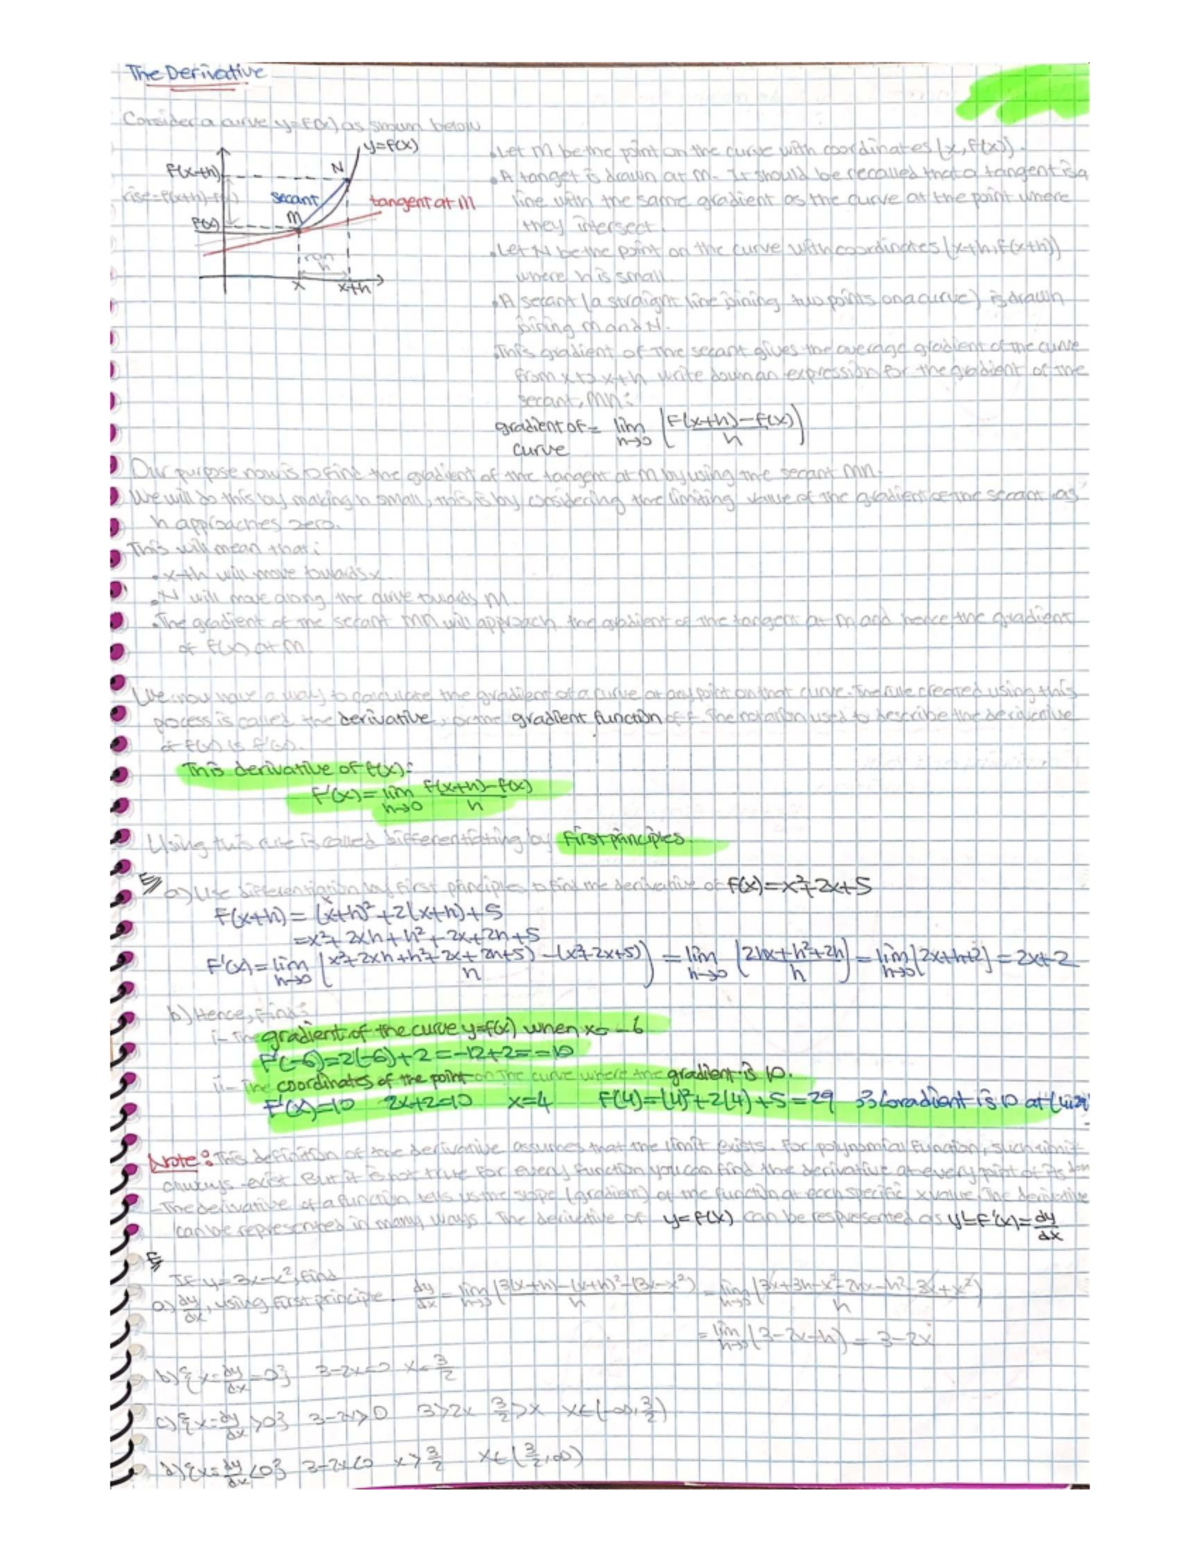 The Derivative
Consider a curve y=f(x) as shown below
y=f(x)
f(x+h)
N
rise=f(x+h)-f(x)
secant
tangent at M
M
f(x)
run
h
x
x+h
• Let M be the point on the curve with coordinates (x, f(x)).
• A tanget is drawn at M. It should be recalled that a tangent is a
line with the same gradient as the curve at the point where
they intersect.
• Let N be the point on the curve with coordinates (x+h, f(x+h))
where h is small.
• A secant (a straight line joining two points on a curve) is drawn
joining M and N.
This gradient of the secant gives the average gradient of the curve
from x to x+h write down an expression for the gradient of the
secant, MN:
gradient of = lim h→0 [f(x+h)-f(x) / h]
curve
Our purpose now is to find the gradient of the tangent at M by using the secant MN.
We will do this by making h small, this is by considering the limiting value of the gradient of the secant as
h approaches zero.
This will mean that:
• x+h will move towards x.
• N will move along the curve towards M.
• The gradient of the secant MN will approach the gradient of the tangent at M and hence the gradient
of f(x) at M.
We now have a way to calculate the gradient of a curve at any point on that curve. The rule created using this
process is called the derivative, or the gradient function of f. The notation used to describe the derivative
of f(x) is f'(x).
This derivative of f(x):
f'(x) = lim h→0 f(x+h)-f(x) / h
Using this rule is called differentiating by first principles.
a) Use differentiation by first principles to find the derivative of f(x)=x²+2x+5
f(x+h) = (x+h)²+2(x+h)+5
=x²+2xh+h²+2x+2h+5
f'(x)= lim h→0 [x²+2xh+h²+2x+2h+5) -(x²+2x+5) / h] = lim h→0 [2hx+h²+2h / h] = lim h→0 [2x+h+2] = 2x+2
b) Hence, find:
i- The gradient of the curve y=f(x) when x=-6
f'(-6)=2(-6)+2=-12+2=-10
ii- The coordinates of the point on the curve where the gradient is 10.
f'(x)=10 2x+2=10 x=4 f(4)=(4)²+2(4)+5=29 Gradient is 10 at (4,29)
Note: This definition of the derivative assumes that the limit exists. For polynomial function, such limit
always exist. But it is not true for every function you can find the derivative at every point of its dom
-The derivative of a function tells us the slope (gradient) of the function at each specific x value. The derivative
can be represented in many ways. The derivative of y=f(x) can be respresented as y'=f'(x)=dy/dx
If y=3x-x², find
a) dy/dx, using first principle. dy/dx = lim h→0 [3(x+h)-(x+h)²-(3x-x²) / h] = lim h→0 [3x+3h-x²-2hx-h²-3x+x² / h]
= lim h→0 (3-2x-h) = 3-2x
b) {x=dy/dx=0} 3-2x=0 x=3/2
c) {x=dy/dx>0} 3-2x>0 3>2x 3/2>x x∈(-∞,3/2)
d) {x=dy/dx<0} 3-2x<0 x>3/2 x∈(3/2,∞)